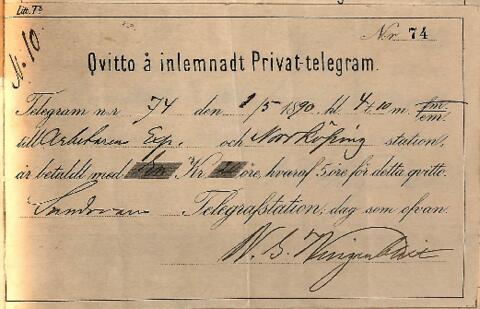 Litt. Tb
N. 10
Nr 74
Qvitto å inlemnadt Privat-telegram.
Telegram n:r 74 den 1/5 1890, kl. 4 t. 10 m. fm. em.
till Arbetaren Exp. och Norrköping station,
är betaldt med Kr öre, hvaraf 5 öre för detta qvitto.
Telegrafstation, dag som ofvan.